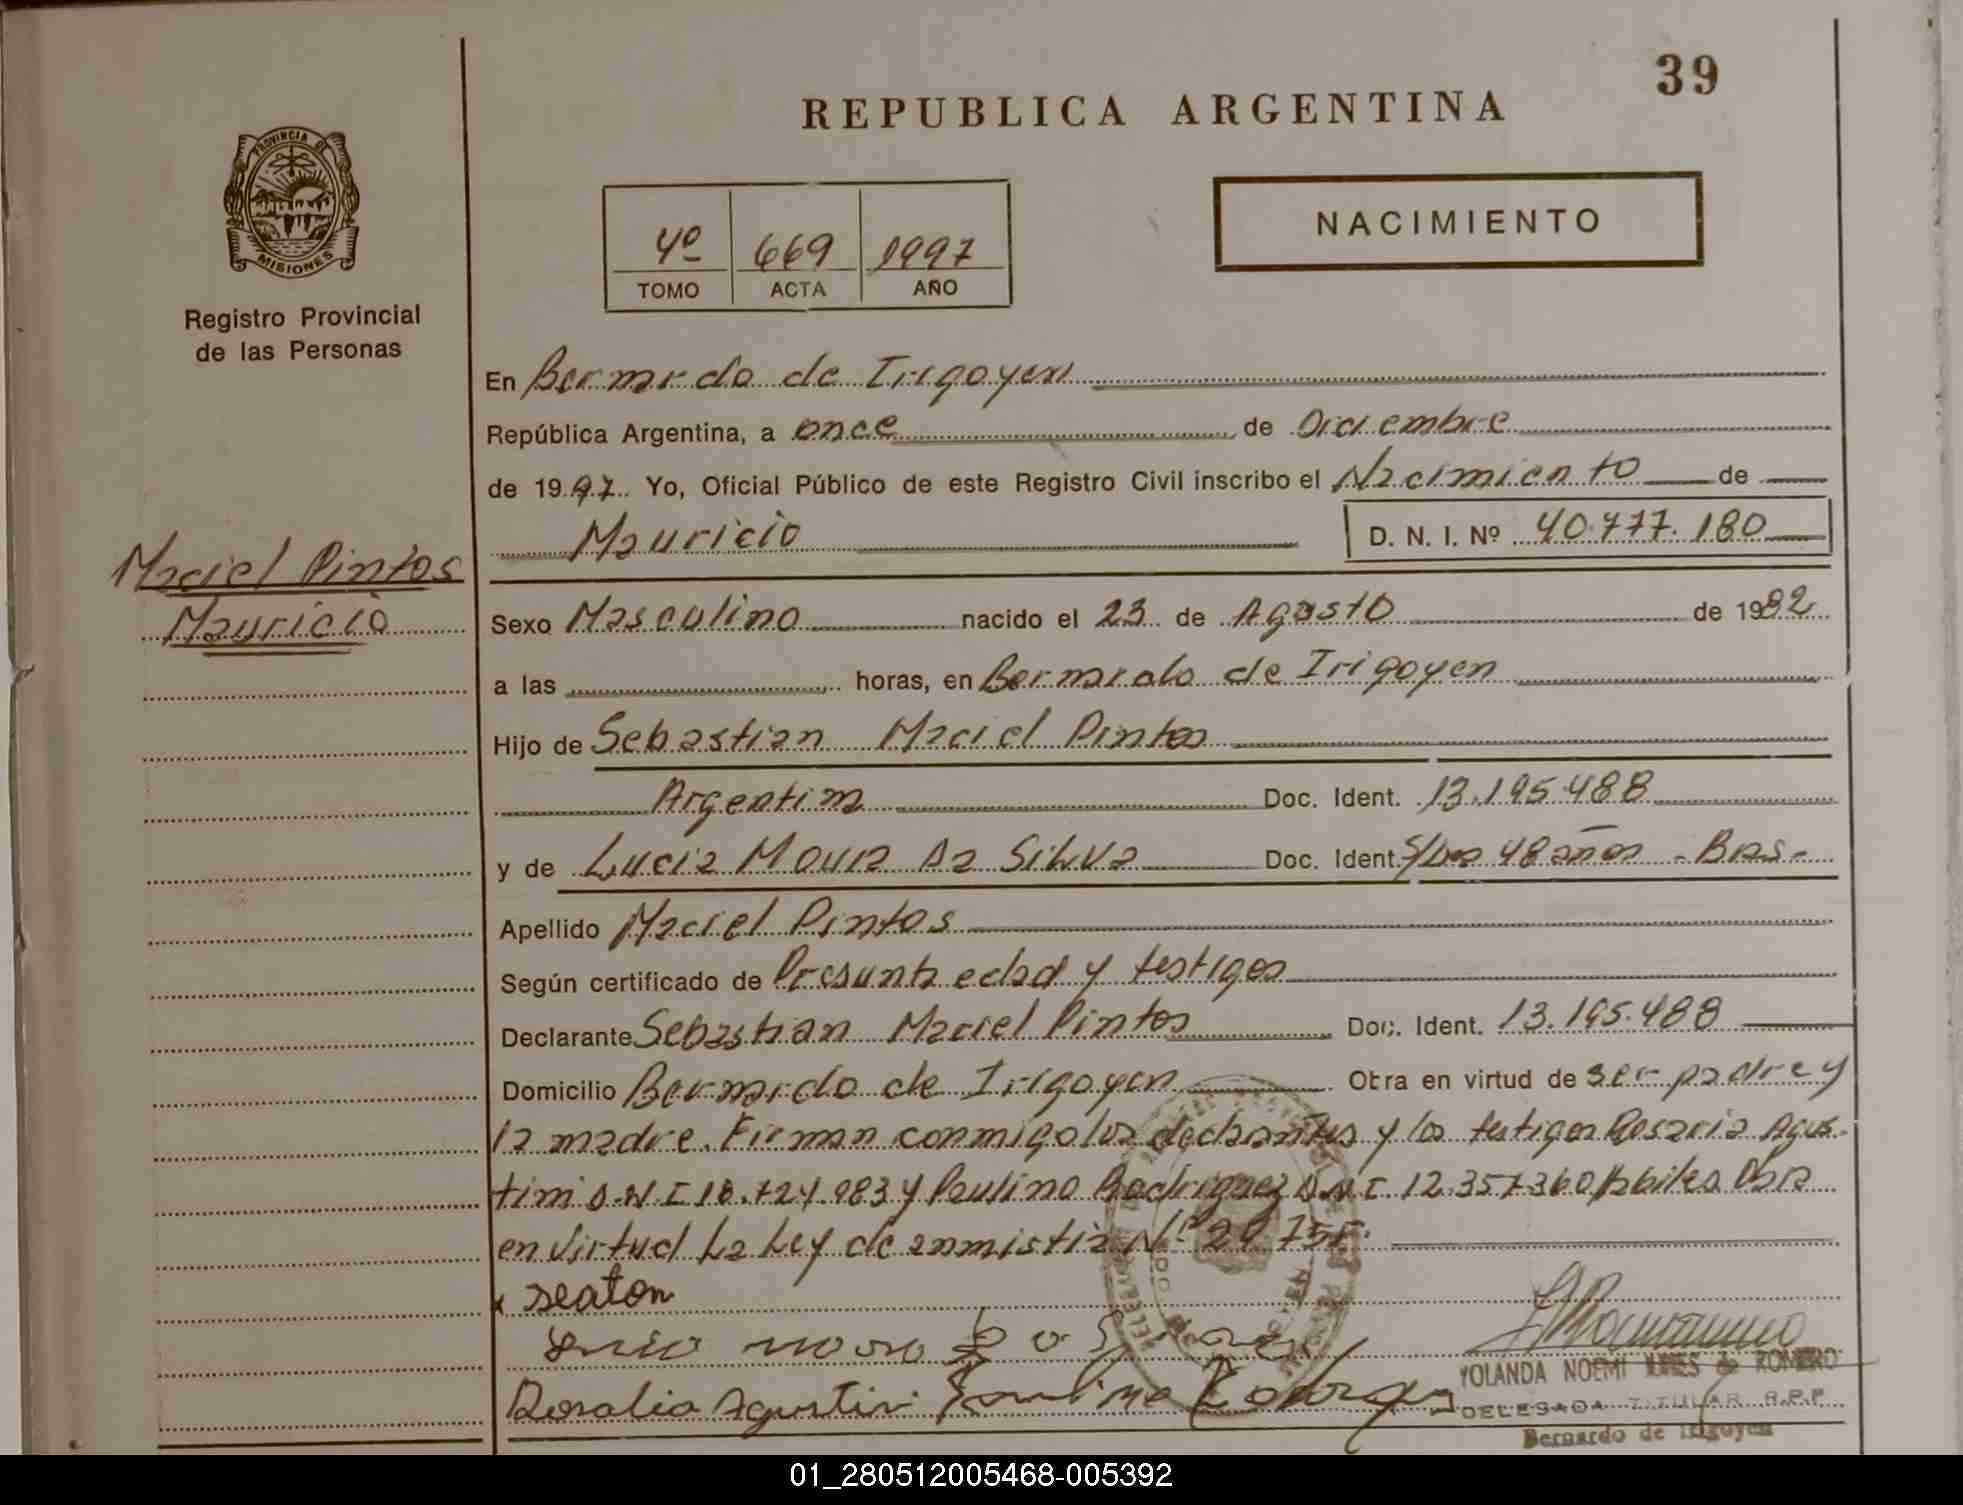 39
REPUBLICA ARGENTINA
PROVINCIA DE
MISIONES
Registro Provincial
de las Personas
NACIMIENTO
4º 669 1997
TOMO ACTA AÑO
En Bernardo de Irigoyen
República Argentina, a once de Diciembre
de 1997. Yo, Oficial Público de este Registro Civil inscribo el Nacimiento de
Mauricio D. N. I. Nº 40.777.180
Maciel Pintos
Mauricio
Sexo Masculino nacido el 23 de Agosto de 1982
a las horas, en Bernardo de Irigoyen
Hijo de Sebastian Maciel Pintos
Argentina Doc. Ident. 13.195.488
y de Lucia Moura Da Silva Doc. Ident. 48 años - Bras-
Apellido Maciel Pintos
Según certificado de Presunta edad y testigos
Declarante Sebastian Maciel Pintos Doc. Ident. 13.195.488
Domicilio Bernardo de Irigoyen Obra en virtud de ser padre y
la madre. Firman conmigo los declarantes y los testigos Rosaria Agus-
tini D.N.I y Paulino Rodriguez D.N.I. 12.357.360 habiles Para
en virtud La Ley de amnistia Nº
x seaton
Rosalia Agustini Paulino
YOLANDA NOEMI de ROMERO
DELEGADA TITULAR R.P.P.
Bernardo de Irigoyen
01_280512005468-005392